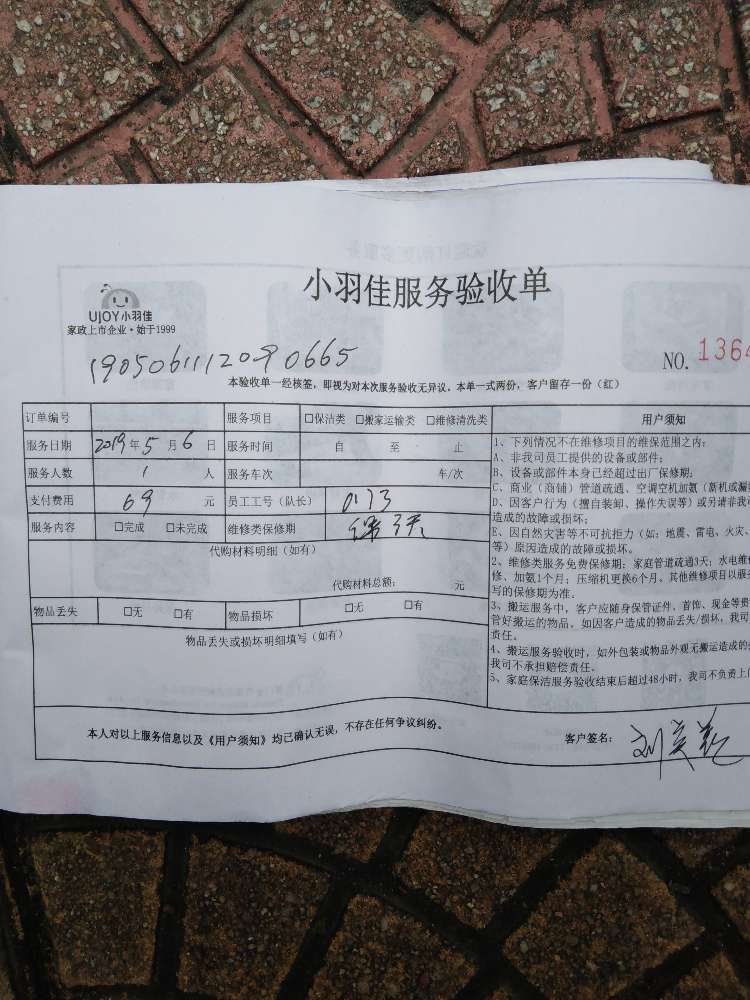 小羽佳服务验收单
UJOY小羽佳
家政上市企业·始于1999
190506111209 0665
NO. 1364
本验收单一经核签，即视为对本次服务验收无异议。本单一式两份，客户留存一份（红）
订单编号 服务项目 □保洁类 □搬家运输类 □维修清洗类 用户须知
服务日期 2019年5月6日 服务时间 自 至 止
服务人数 1 人 服务车次 车/次
支付费用 69 元 员工工号（队长） 0173
服务内容 □完成 □未完成 维修类保修期 保3天
代购材料明细（如有）
代购材料总额： 元
物品丢失 □无 □有 物品损坏 □无 □有
物品丢失或损坏明细填写（如有）
1、下列情况不在维修项目的维保范围之内：
A、非我司员工提供的设备或部件；
B、设备或部件本身已经超过出厂保修期；
C、商业（商铺）管道疏通、空调空机加氨（新机或漏
D、因客户行为（擅自装卸、操作失误等）或另请非我司
造成的故障或损坏；
E、因自然灾害等不可抗拒力（如：地震、雷电、火灾、
等）原因造成的故障或损坏。
2、维修类服务免费保修期：家庭管道疏通3天；水电维
修、加氨1个月；压缩机更换6个月。其他维修项目以服
写的保修期为准．
3、搬运服务中，客户应随身保管证件、首饰、现金等贵
管好搬运的物品。如因客户造成的物品丢失/损坏，我司
责任。
4、搬运服务验收时，如外包装或物品外观无搬运造成的
我司不承担赔偿责任。
5、家庭保洁服务验收结束后超过48小时，我司不负责上
本人对以上服务信息以及《用户须知》均已确认无误，不存在任何争议纠纷。
客户签名：